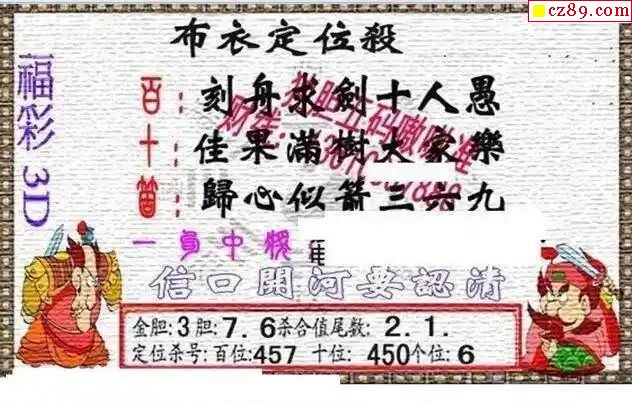 cz89.com
布衣定位殺
福彩3D
百:刻舟求劍十人愚
十:佳果滿樹大家樂
個:歸心似箭三六九
信口開河要認清
金胆:3胆:7.6杀合值尾数:2.1.
定位杀号:百位:457 十位:450个位:6